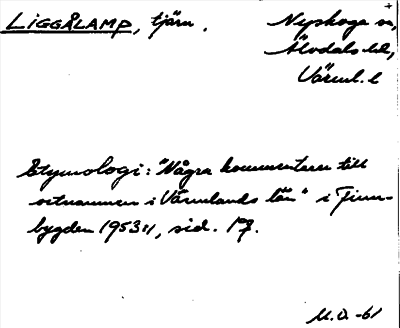 LIGGÅLAMP, tjärn.
Nyskoga sn,
Älvdals hd,
Värml. l
Etymologi: "Några kommentarer till
ortnamnen i Värmlands län" i Finn-
bygden 1953:1, sid. 17.
M.O. -61